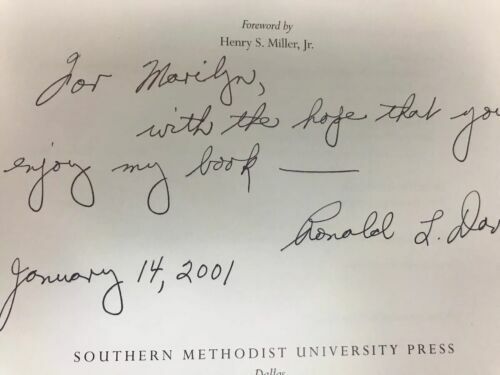 Foreword by
Henry S. Miller, Jr.
For Marilyn,
with the hope that you
enjoy my book —
Ronald L. Dav
January 14, 2001
SOUTHERN METHODIST UNIVERSITY PRESS
Dallas